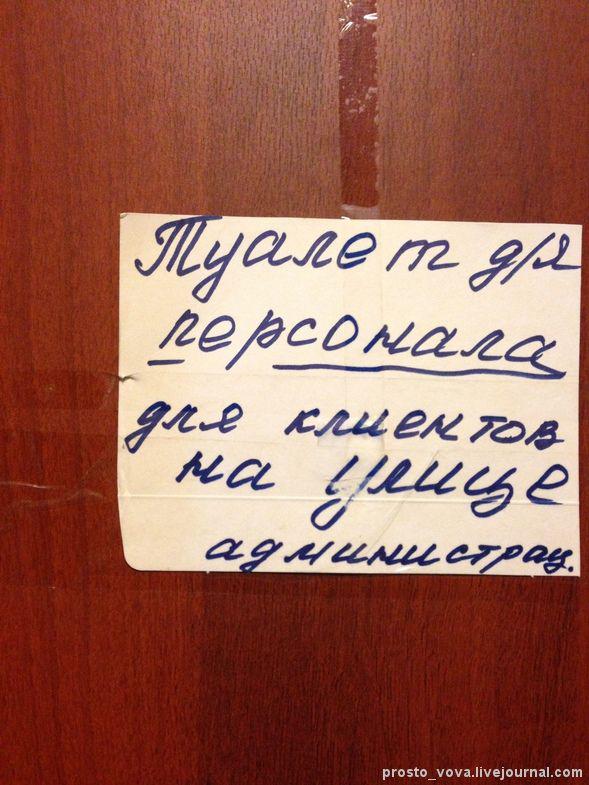 Туалет д/я
персонала
для клиентов
на улице
администрац.
prosto_vova.livejournal.com